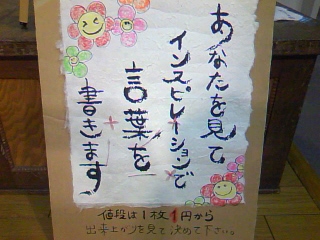 あなたを見て
インスピレーションで
言葉を
書きます
値段は1枚1円から
出来上がりを見て決めて下さい。